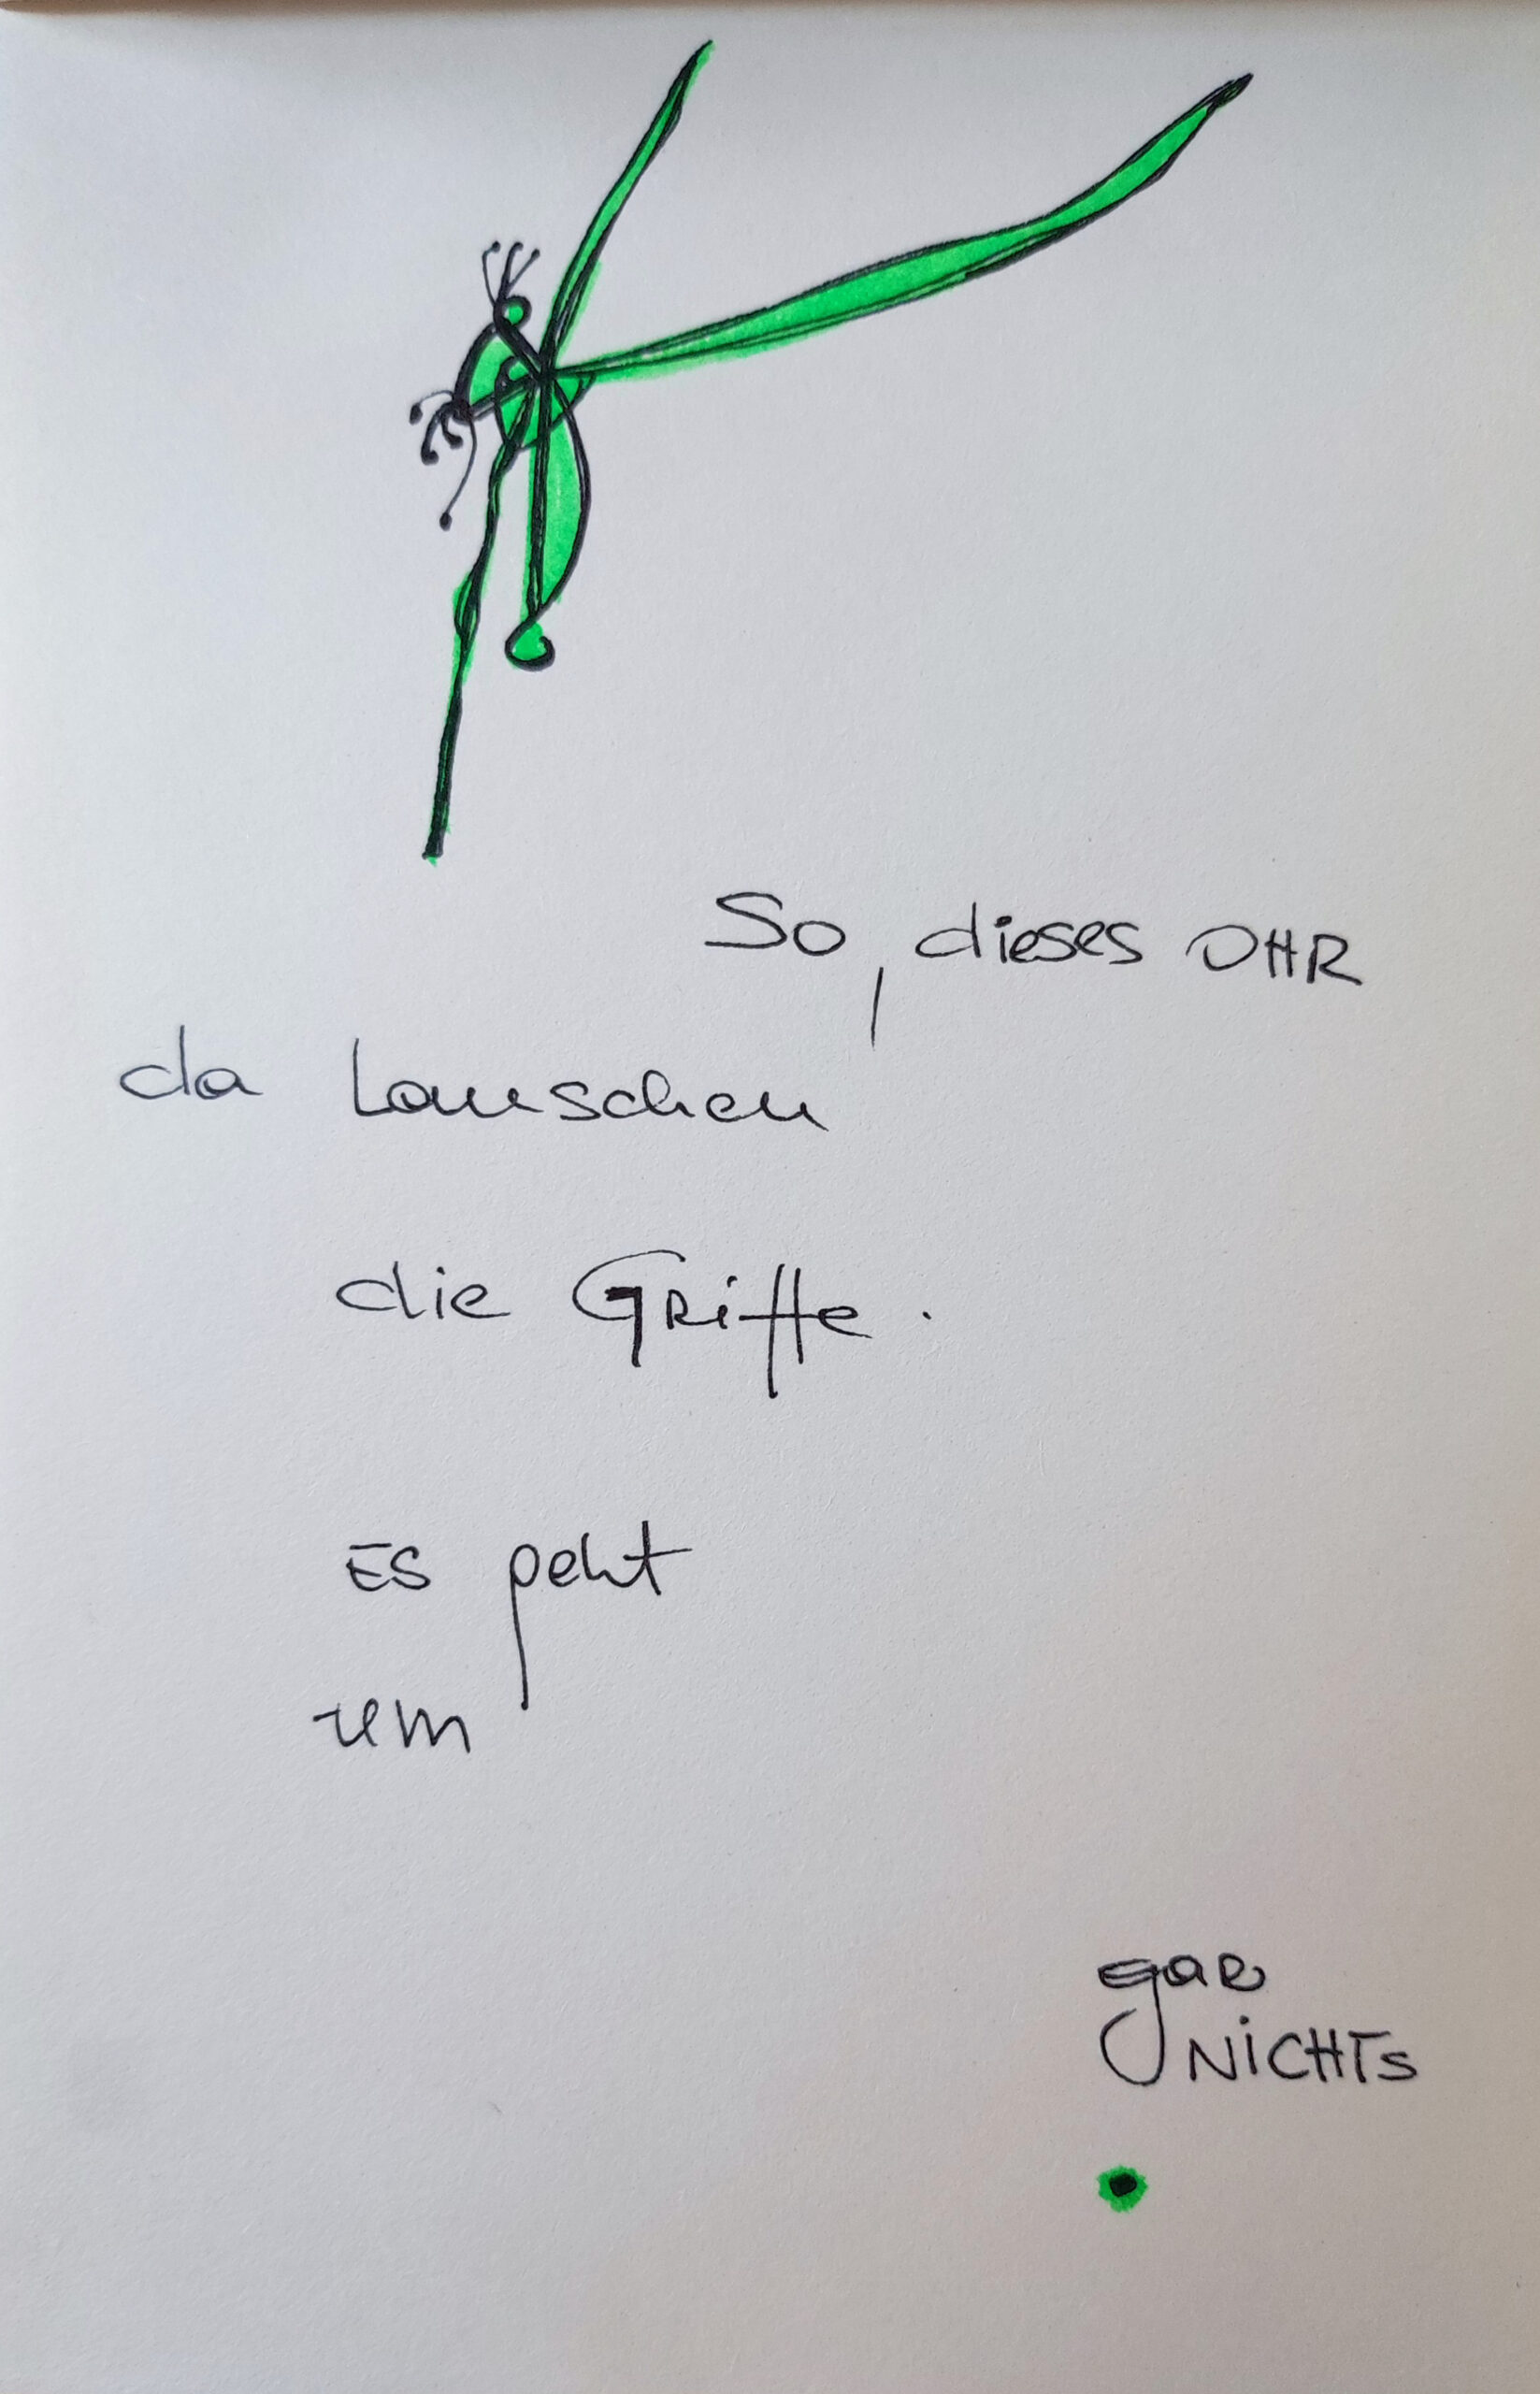 So, dieses OHR
da Lauschen
die Griffe.
ES geht
um
gar
NiCHTs